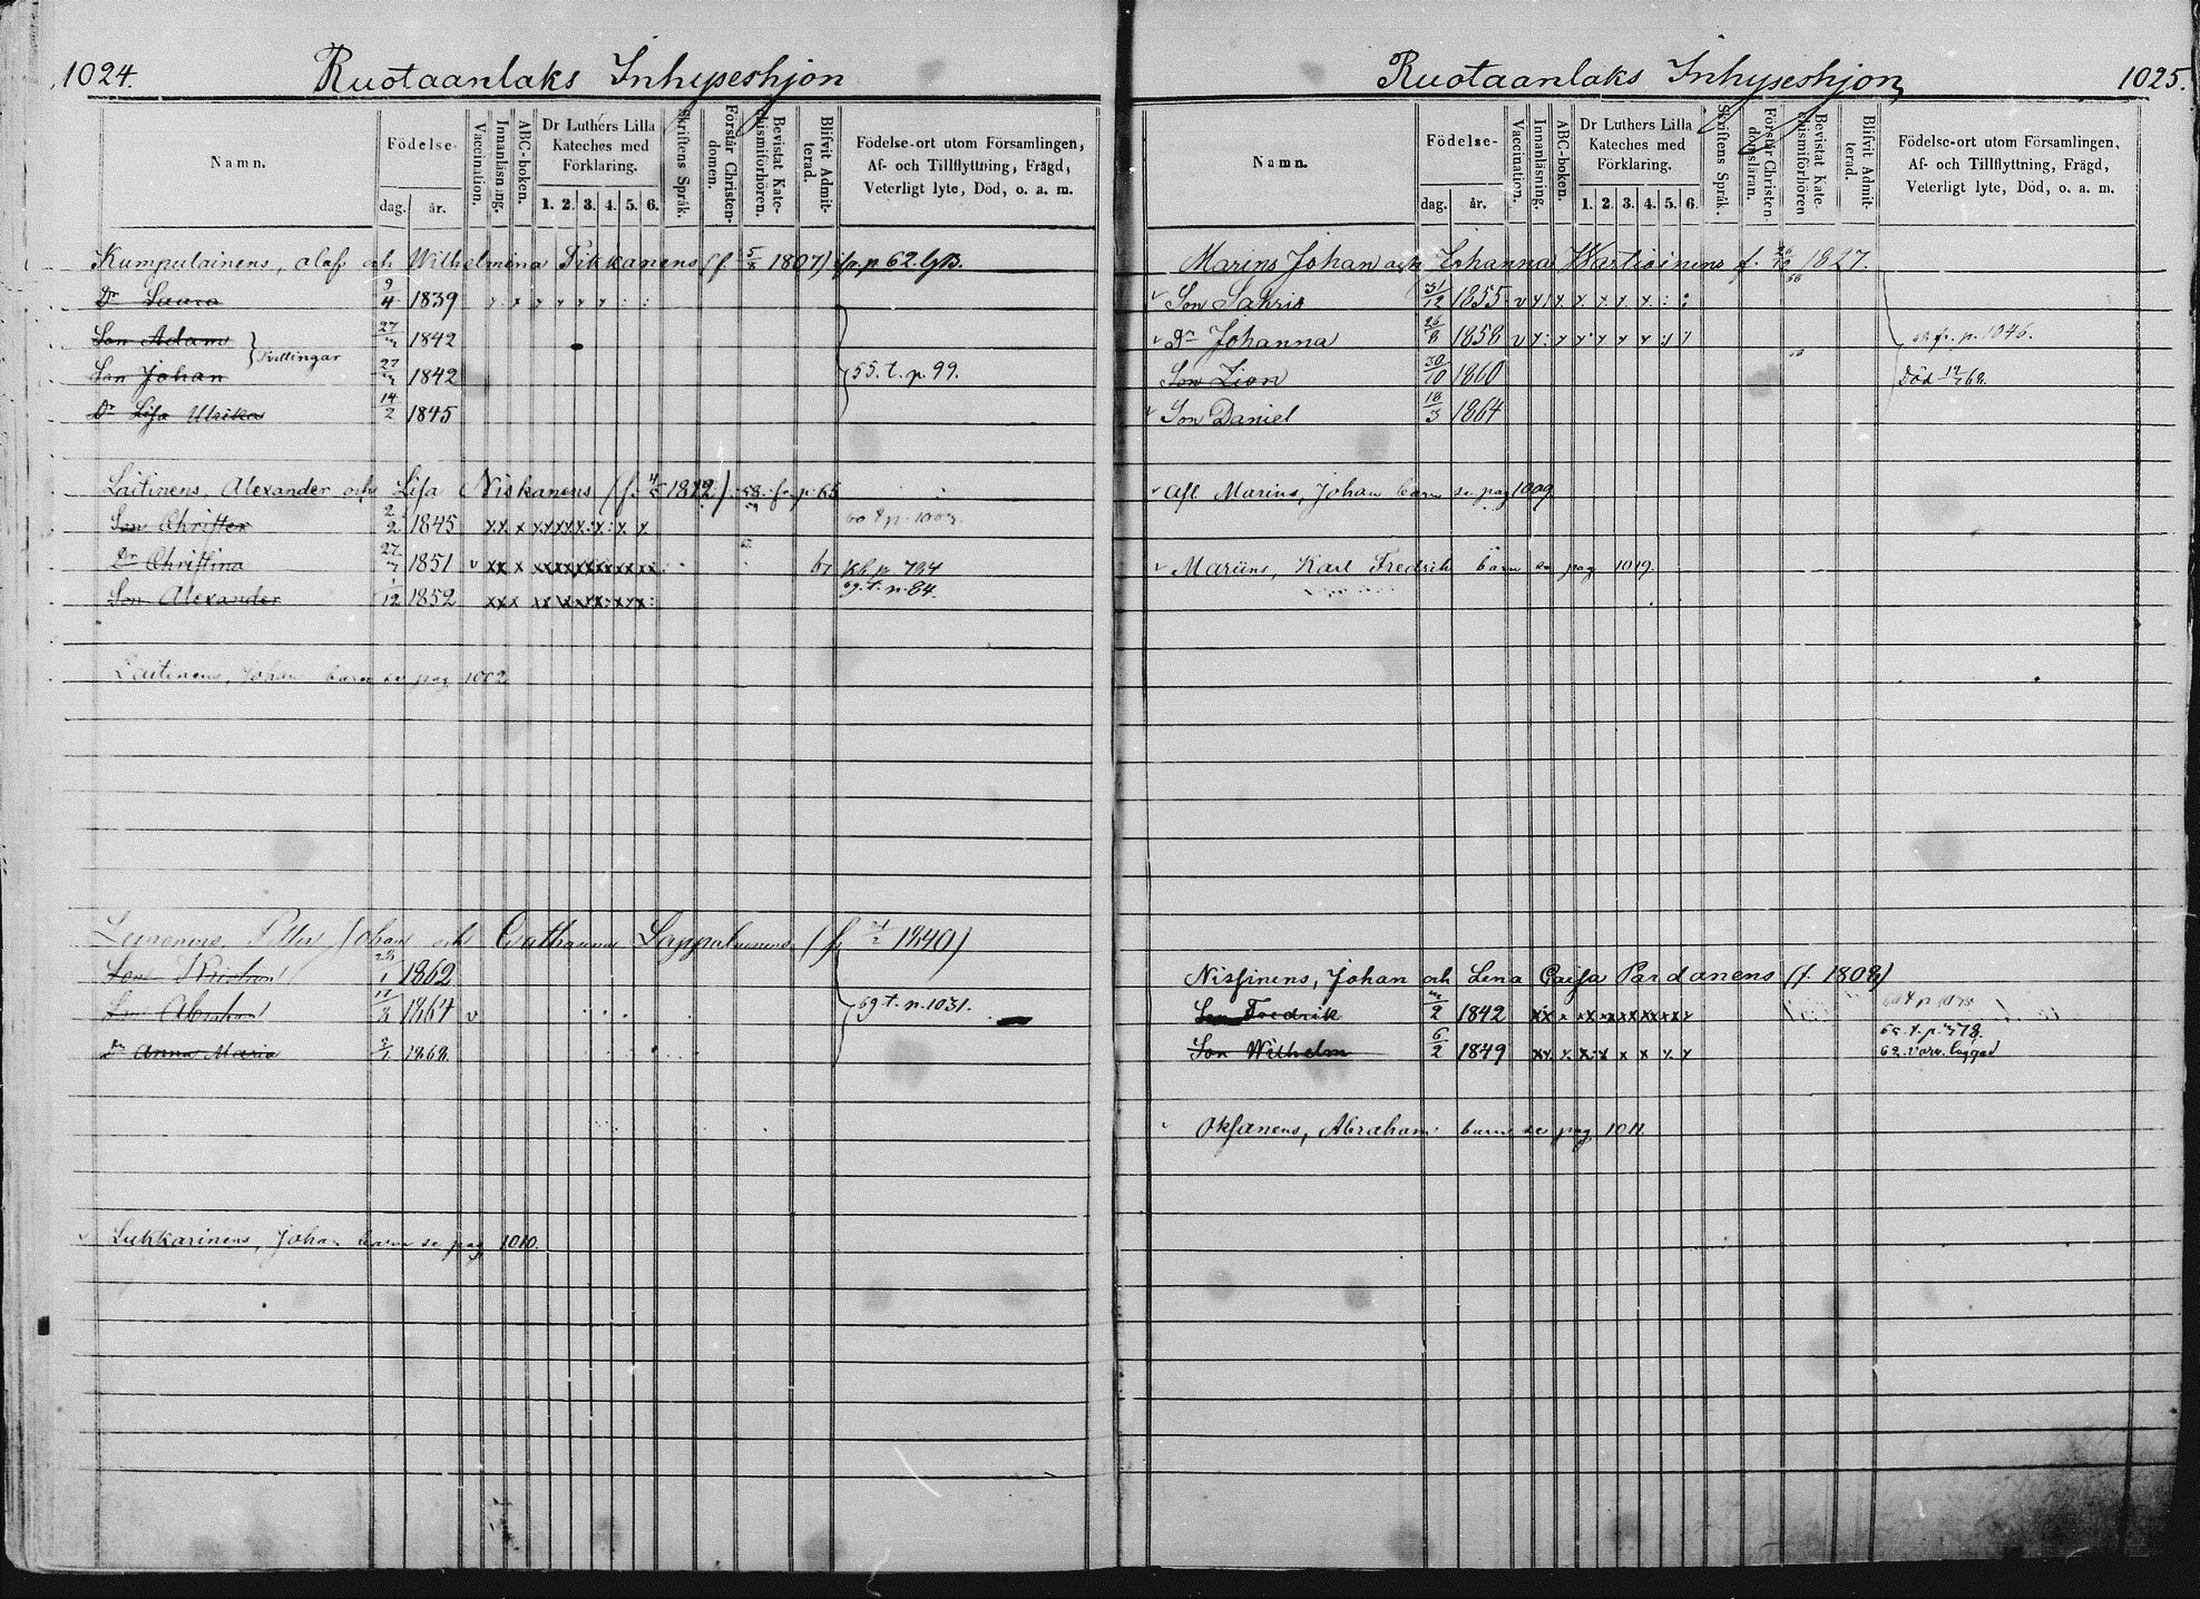 1024. Ruotaanlaks Inhyseshjon
Namn. Födelse- dag. år. Vaccination. Innanläsning. ABC-boken. Dr Luthérs Lilla Kateches med Förklaring. 1. 2. 3. 4. 5. 6. Skriftens Språk. Förstår Christendomen. Bevistat Katechismiförhören. Blifvit Admitterad. Födelse-ort utom Församlingen, Af- och Tillflyttning, Frägd, Veterligt lyte, Död, o. a. m.
Kumpulainens, Olof och Wilhelmina Tikkanens (f. 5/8 1807) fr. p. 62.
Dr Saara 9/4 1839
Son Adam 27/ 1842
Tvillingar
Son Johan 27/ 1842 55. t. p. 99.
Dr Lisa Ulrika 14/2 1845
Laitinens, Alexander och Lisa Niskanens (f. 1812) 58. fr. p. 65
Son Christer 2/2 1845
Dr Christina 27/ 1851 v 794
Son Alexander 1/12 1852 69. t. p. 84.
Laitinens, Johan barn se pag 1002
Johan och Catharina (f. 1840)
Son 1/1 1862
Son Abraham 1864 v 69. t. p. 1031.
Dr Anna Maria 1868
v Lukkarinens, Johan barn se pag 1010.
Ruotaanlaks Inhyseshjon 1025.
Namn. Födelse- dag. år. Vaccination. Innanläsning. ABC-boken. Dr Luthers Lilla Kateches med Förklaring. 1. 2. 3. 4. 5. 6. Skriftens Språk. Förstår Christendomsläran. Bevistat Katechismiförhören Blifvit Admitterad. Födelse-ort utom Församlingen, Af- och Tillflyttning, Frägd, Veterligt lyte, Död, o. a. m.
Marins Johan och Johanna Wartiainens f. 26/10 1827.
v Son Sakris 31/12 1855 v
v Dr Johanna 26/8 1858 v fr. p. 1046.
Son Lion 30/10 1860 Död 68.
v Son Daniel 18/3 1864
v Afl. Marins, Johan barn se pag 1009
v Mariins, Karl Fredrik barn se pag 1019.
Nissinens, Johan och Lena Caisa Pardanens (f. 1808)
Son Fredrik 1842
Son Wilhelm 6/2 1849
v Oksanens, Abraham barn se pag 1011.